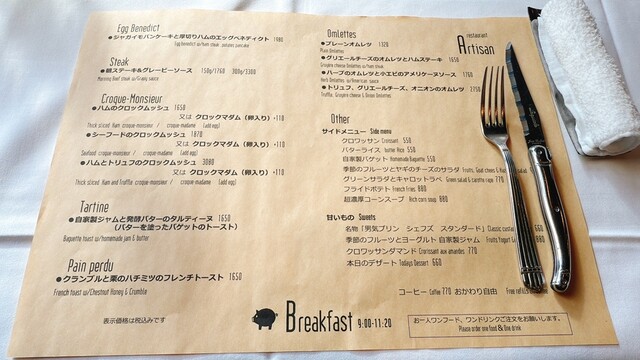 Egg Benedict
●ジャガイモパンケーキと厚切りハムのエッグベネディクト 1980
Egg benedict w/ham steak potatoes pancake
Steak
●朝ステーキ&グレービーソース 150g/1760 300g/3300
Morning Beef steak w/Gravy sauce
Croque-Monsieur
●ハムのクロックムッシュ 1650
又は クロックマダム (卵入り) +110
Thick sliced Ham croque-monsieur / croque-madame (add egg)
●シーフードのクロックムッシュ 1870
又は クロックマダム (卵入り) +110
Seafood croque-monsieur / croque-madame (add egg)
●ハムとトリュフのクロックムッシュ 3080
又は クロックマダム (卵入り) +110
Thick sliced Ham and Truffle croque-monsieur / croque-madame (add egg)
Tartine
●自家製ジャムと発酵バターのタルティーヌ 1650
(バターを塗ったバゲットのトースト)
Baguette toast w/homemade jam & butter
Pain perdu
●クランブルと栗のハチミツのフレンチトースト 1650
French toast w/Chestnut Honey & Crumble
表示価格は税込みです
restaurant
Artisan
Omlettes
●プレーンオムレツ 1320
Plain Omlettes
●グリエールチーズのオムレツとハムステーキ 1650
Gruyère cheese Omlettes w/ham steak
●ハーブのオムレツと小エビのアメリケーヌソース 1760
Herb Omlettes w/American sauce
●トリュフ、グリエールチーズ、オニオンのオムレツ 2250
Truffle, Gruyère cheese & Onion Omlettes
Other
サイドメニュー Side menu
クロワッサン Croissant 550
バターライス butter Rice 550
自家製バゲット Homemade Baguette 550
季節のフルーツとヤギのチーズのサラダ Fruits, Goat chees
グリーンサラダとキャロットラペ Green salad & carotte rape 770
フライドポテト French Fries 880
超濃厚コーンスープ Rich corn soup 880
甘いもの Sweets
名物「男気プリン シェフズ スタンダード」 Classic custa 660
季節のフルーツとヨーグルト 自家製ジャム Fruits Yogurt 880
クロワッサンダマンド Croissant aux amandes 770
本日のデザート Todays Dessert 660
コーヒー Coffee 770 おかわり自由 Free refil
Breakfast 9:00-11:20
お一人ワンフード、ワンドリンクご注文をお願いします。
Please order one food & One drink.